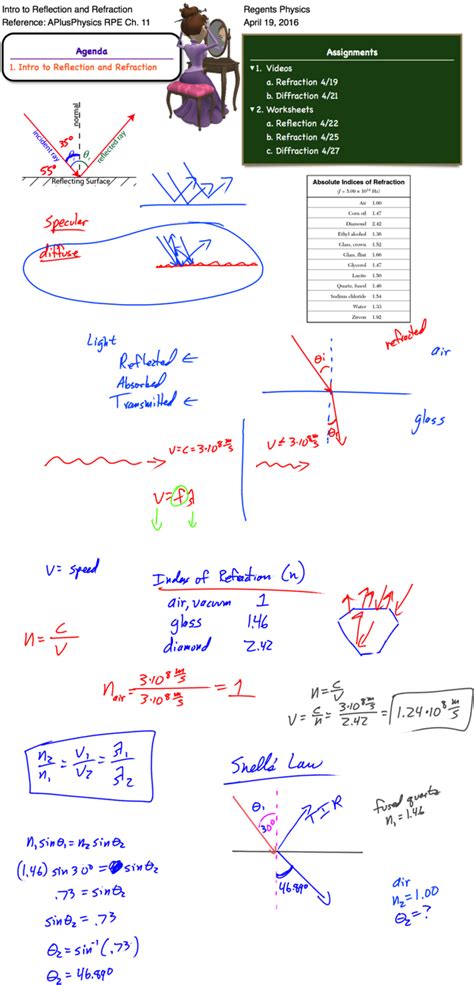 Intro to Reflection and Refraction
Reference: APlusPhysics RPE Ch. 11
Regents Physics
April 19, 2016
Agenda
1. Intro to Reflection and Refraction
Assignments
1. Videos
a. Refraction 4/19
b. Diffraction 4/21
2. Worksheets
a. Reflection 4/22
b. Refraction 4/25
c. Diffraction 4/27
normal
incident ray
35°
θ
reflected ray
55°
Reflecting Surface
Specular
diffuse
Absolute Indices of Refraction
(f = 5.09 × 10¹⁴ Hz)
Air 1.00
Corn oil 1.47
Diamond 2.42
Ethyl alcohol 1.36
Glass, crown 1.52
Glass, flint 1.66
Glycerol 1.47
Lucite 1.50
Quartz, fused 1.46
Sodium chloride 1.54
Water 1.33
Zircon 1.92
Light
Reflected ←
Absorbed
Transmitted ←
θi
refracted
air
glass
θr
v=c=3·10⁸ m/s
v≤3·10⁸ m/s
v=fλ
v= speed
Index of Refraction (n)
air, vacuum 1
glass 1.46
diamond 2.42
n=c/v
n air = 3·10⁸ m/s / 3·10⁸ m/s = 1
n=c/v
v=c/n=3·10⁸ m/s / 2.42 = 1.24·10⁸ m/s
n₂/n₁ = v₁/v₂ = λ₁/λ₂
Snell's Law
θ₁
30°
TIR
46.89°
fused quartz
n₁=1.46
air
n₂=1.00
θ₂=?
n₁sinθ₁=n₂sinθ₂
(1.46)sin30°= sinθ₂
.73=sinθ₂
sinθ₂=.73
θ₂=sin⁻¹(.73)
θ₂=46.89°